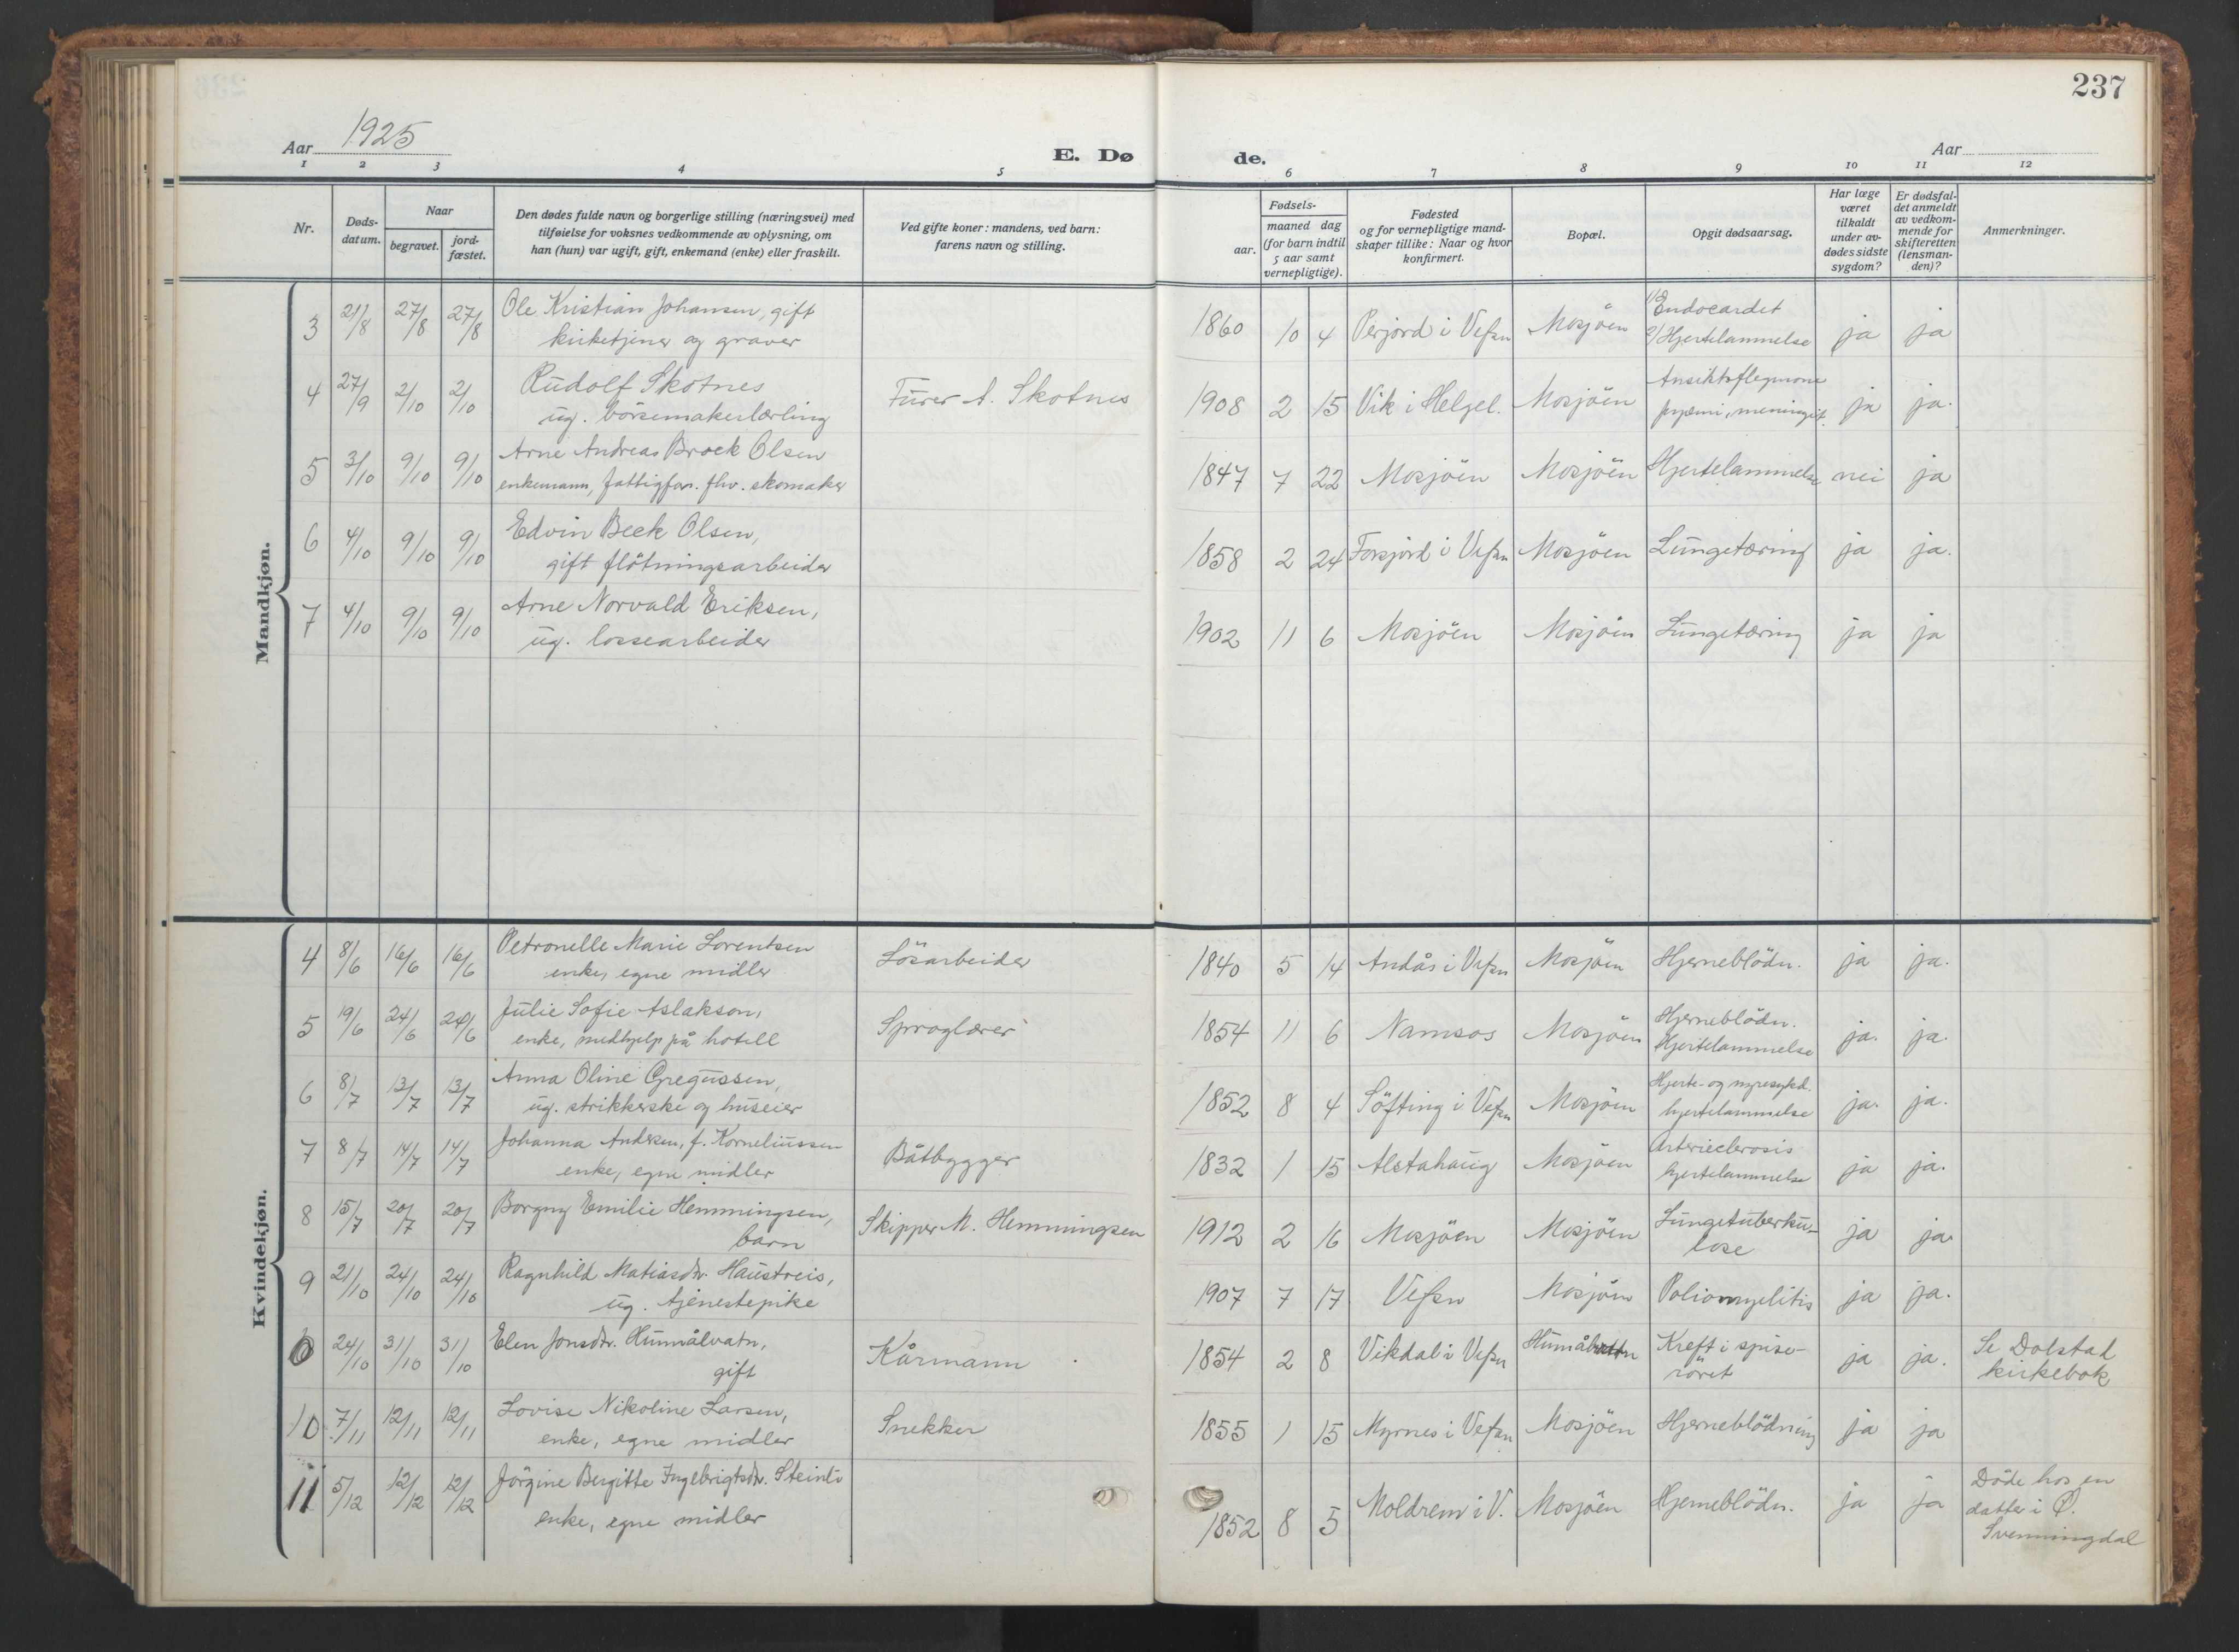 237
Aar 1925
E. Dø
de.
Aar
1 2 3 4 5 6 7 8 9 10 11 12
Nr.
Døds-
datum.
Naar
begravet.
jord-
fæstet.
Den dødes fulde navn og borgerlige stilling (næringsvei) med
tilføielse for voksnes vedkommende av oplysning, om
han (hun) var ugift, gift, enkemand (enke) eller fraskilt.
Ved gifte koner: mandens, ved barn:
farens navn og stilling.
Fødsels-
aar.
maaned dag
(for barn indtil
5 aar samt
vernepligtige).
Fødested
og for vernepligtige mand-
skaper tillike: Naar og hvor
konfirmert.
Bopæl.
Opgit dødsaarsag.
Har læge
været
tilkaldt
under av-
dødes sidste
sygdom?
Er dødsfal-
det anmeldt
av vedkom-
mende for
skifteretten
(lensman-
den)?
Anmerkninger.
Mandkjøn.
3 21/8 27/8 27/8 Ole Kristian Johansen, gift
kirketjener og graver
1860 10 4 Perjord i Vefsn Mosjöen 1/ Endocardet
2/ Hjertelammelse ja ja
4 27/9 2/10 2/10 Rudolf Skotnes
ug. börsemakerlærling
Furer A. Skotnes 1908 2 15 Vik i Helgel. Mosjöen Ansiktsflegmone
pyemi, meningit. ja ja.
5 3/10 9/10 9/10 Arne Andreas Brock Olsen
enkemann, fattigfor. fhv. skomaker
1847 7 22 Mosjöen Mosjöen Hjertelammelse nei ja
6 4/10 9/10 9/10 Edvin Beck Olsen,
gift flötningsarbeider
1858 2 24 Forsjord i Vefsn Mosjöen Lungetæring ja ja.
7 4/10 9/10 9/10 Arne Norvald Eriksen,
ug. lossearbeider
1902 11 6 Mosjöen Mosjöen Lungetæring ja ja
Kvindekjøn.
4 8/6 16/6 16/6 Petronelle Marie Lorentsen
enke, egne midler
Lösarbeider 1840 5 14 Andås i Vefsn Mosjöen Hjerneblödn. ja ja.
5 19/6 24/6 24/6 Julie Sofie Aslakson,
enke, medhjelp på hotell
Sproglærer 1854 11 6 Namsos Mosjöen Hjerneblödn.
Hjertelammelse ja. ja.
6 8/7 13/7 13/7 Anna Oline Gregussen,
ug. strikkerske og huseier
1852 8 4 Söfting i Vefsn Mosjöen Hjerte- og nyresykd.
hjertelammelse ja. ja.
7 8/7 14/7 14/7 Johanna Andersen, f. Korneliussen
enke, egne midler
Båtbygger 1832 1 15 Alstahaug Mosjöen Arterieclerosis
hjertelammelse ja ja.
8 15/7 20/7 20/7 Borgny Emilie Hemmingsen,
barn
Skipper M. Hemmingsen 1912 2 16 Mosjöen Mosjöen Lungetuberku-
lose ja ja.
9 21/10 24/10 24/10 Ragnhild Matiasdtr. Haustreis,
ug. tjenestepike
1907 7 17 Vefsn Mosjöen Poliomyelitis ja ja.
24/10 31/10 31/10 Elen Jonsdtr. Hunnålvatn,
gift
Kårmann 1854 2 8 Vikdal i Vefsn Kreft i spise-
röret ja ja. Se Dolstad
kirkebok
10 7/11 12/11 12/11 Lovise Nikoline Larsen,
enke, egne midler
Snekker 1855 1 15 Myrnes i Vefsn Mosjöen Hjerneblödning ja ja
11 5/12 12/12 12/12 Jörgine Bergitte Ingebrigtsdtr.
enke, egne midler
1852 8 5 Moldrem i V. Mosjöen Hjerneblödn. ja ja Döde hos en
datter i Ø.
Svenningdal